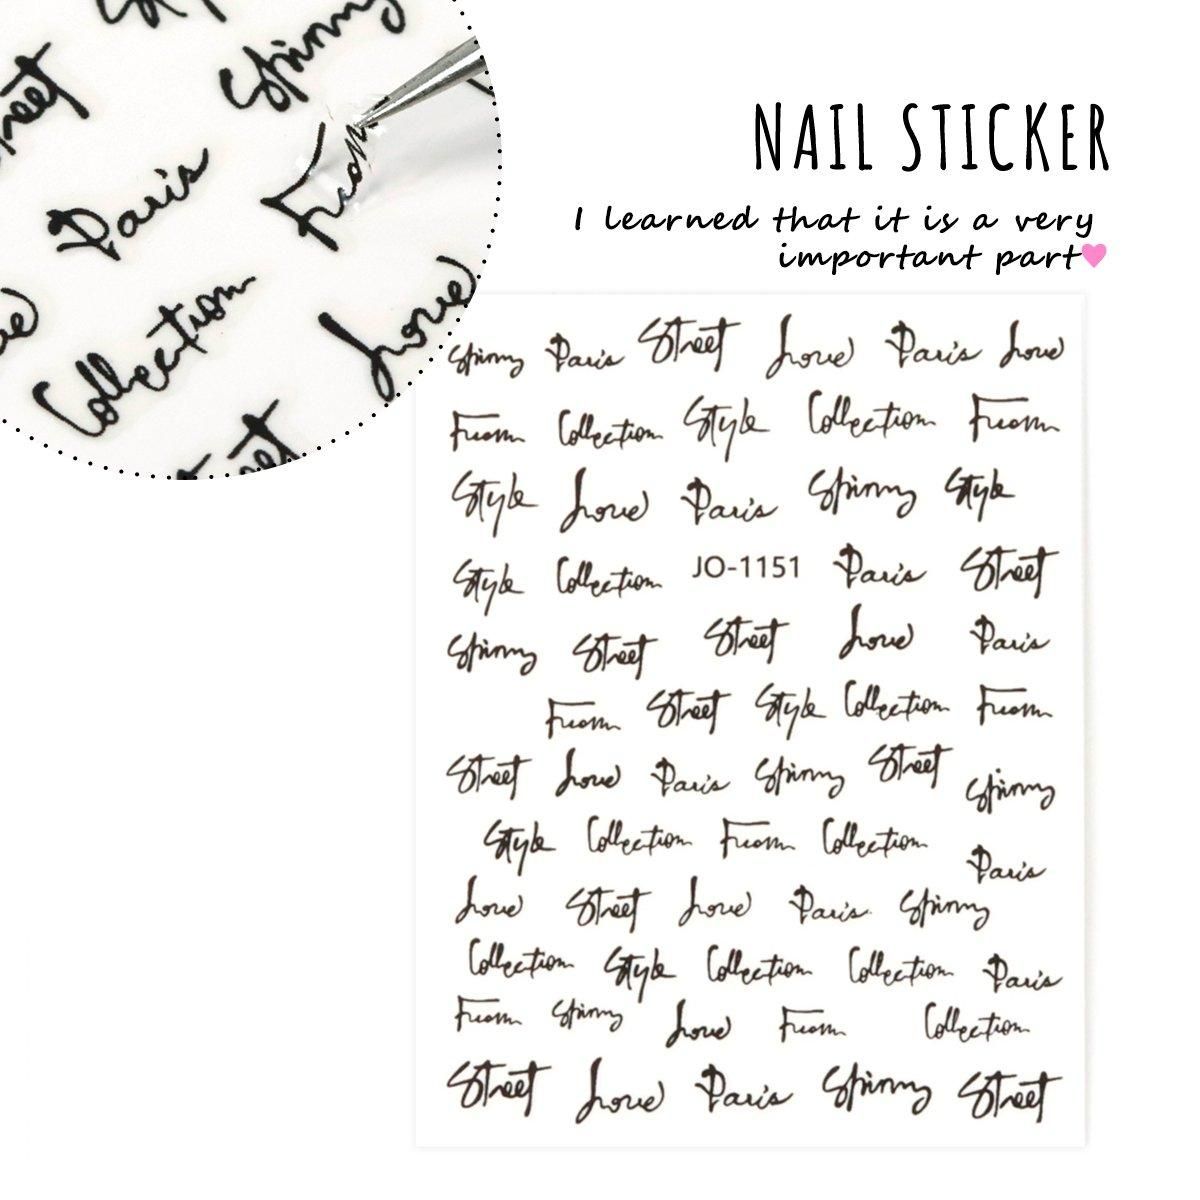 NAIL STICKER
I learned that it is a very
important part
Spinny
Street
Paris
From
Collection
Love
Spinny Paris Street Love Paris Love
From Collection Style Collection From
Style Love Paris Spinny Style
Style Collection JO-1151 Paris Street
Spinny Street Street Love Paris
From Street Style Collection From
Street Love Paris Spinny Street Spinny
Style Collection From Collection Paris
Love Street Love Paris Spinny
Collection Style Collection Collection Paris
From Spinny Love From Collection
Street Love Paris Spinny Street